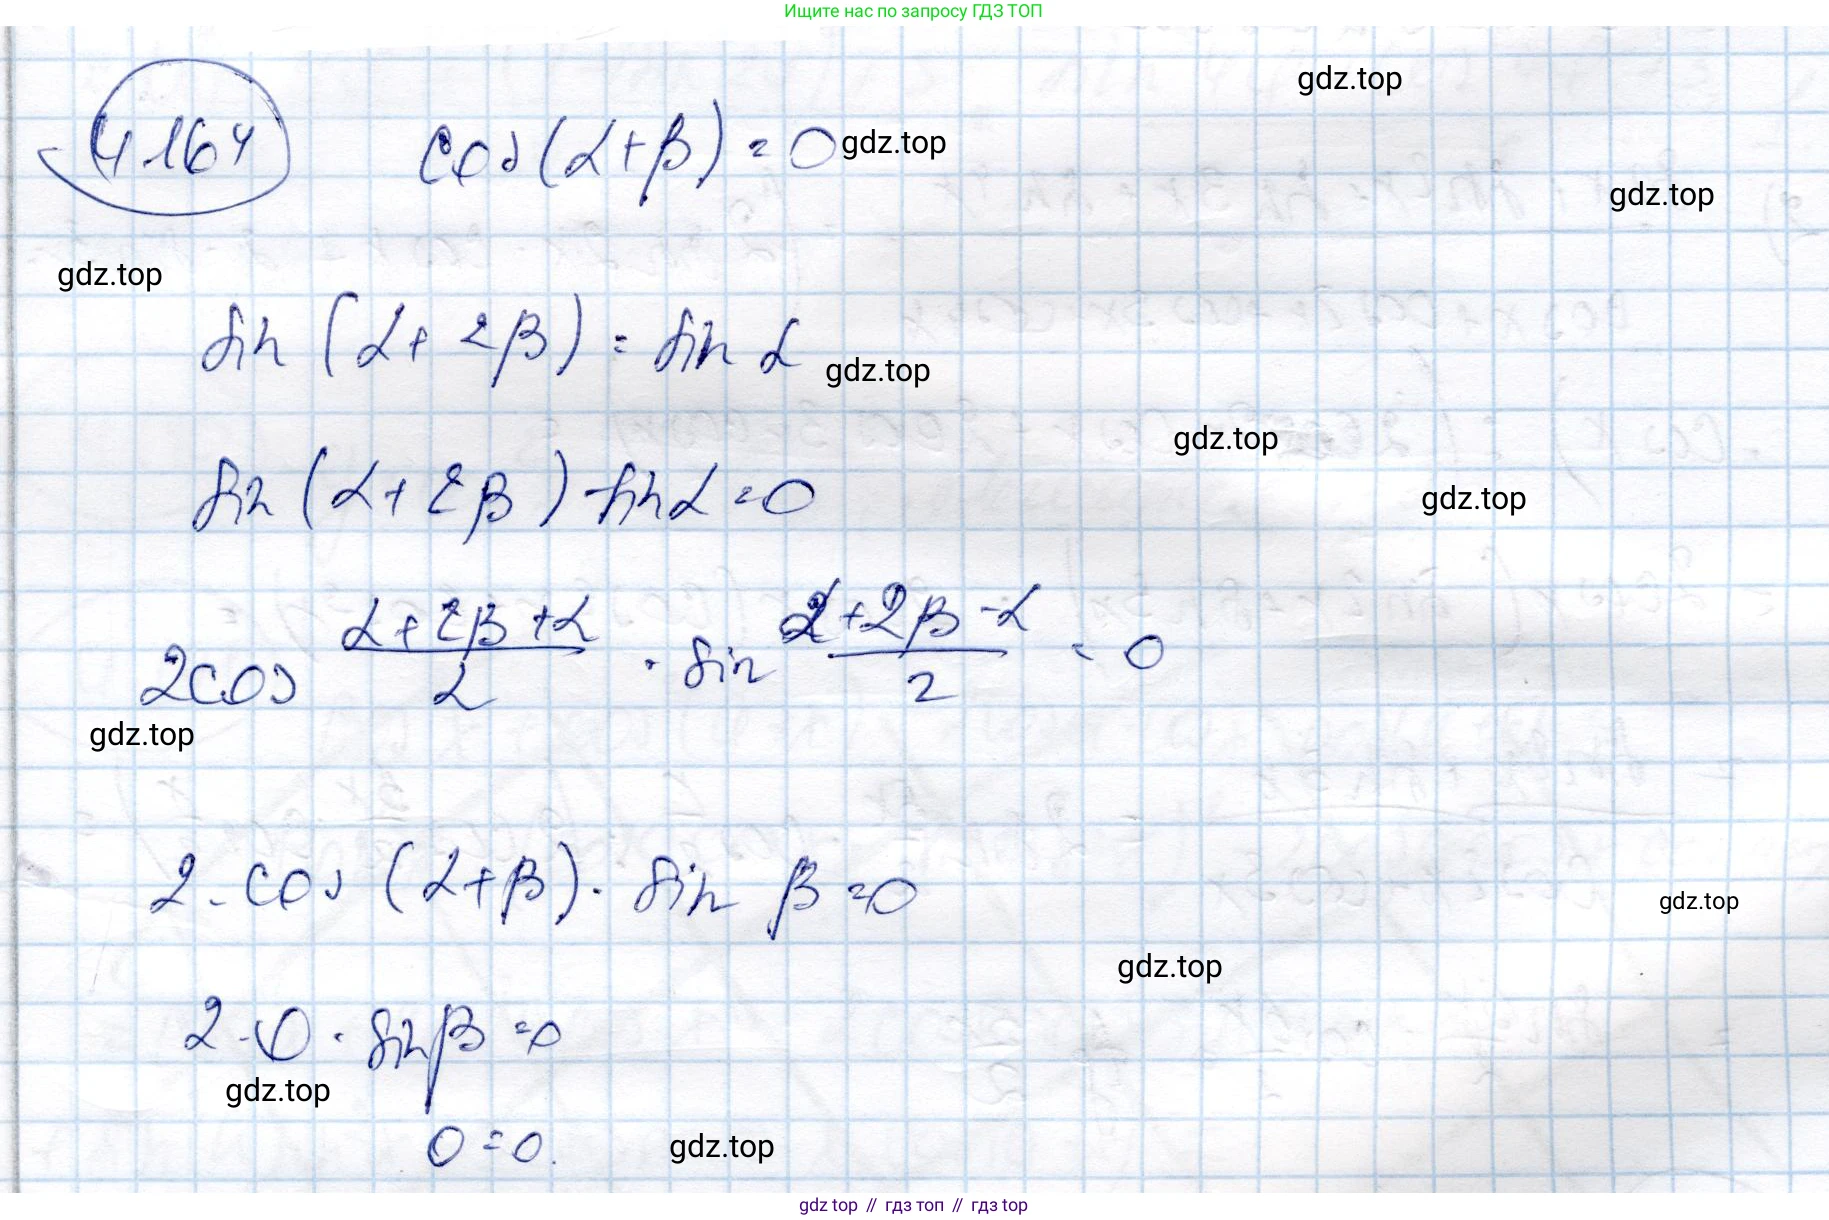 Ищите нас по запросу ГДЗ ТОП
gdz.top
4.164 cos(α+β)=0 gdz.top
gdz.top
gdz.top
sin(α+2β)=sin α gdz.top
gdz.top
sin(α+2β)-sin α=0 gdz.top
2cos (α+2β+α)/2 · sin (α+2β-α)/2 = 0
gdz.top
2·cos(α+β)·sin β=0 gdz.top
gdz.top
2·0·sin β=0
gdz.top
0=0. gdz.top
gdz top // гдз топ // гдз top